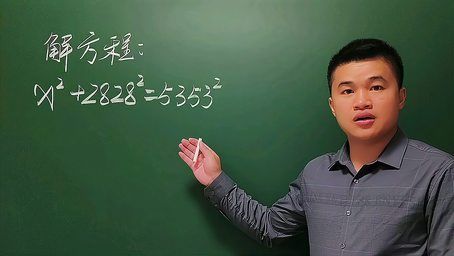 解方程:
x²+2828²=5353²